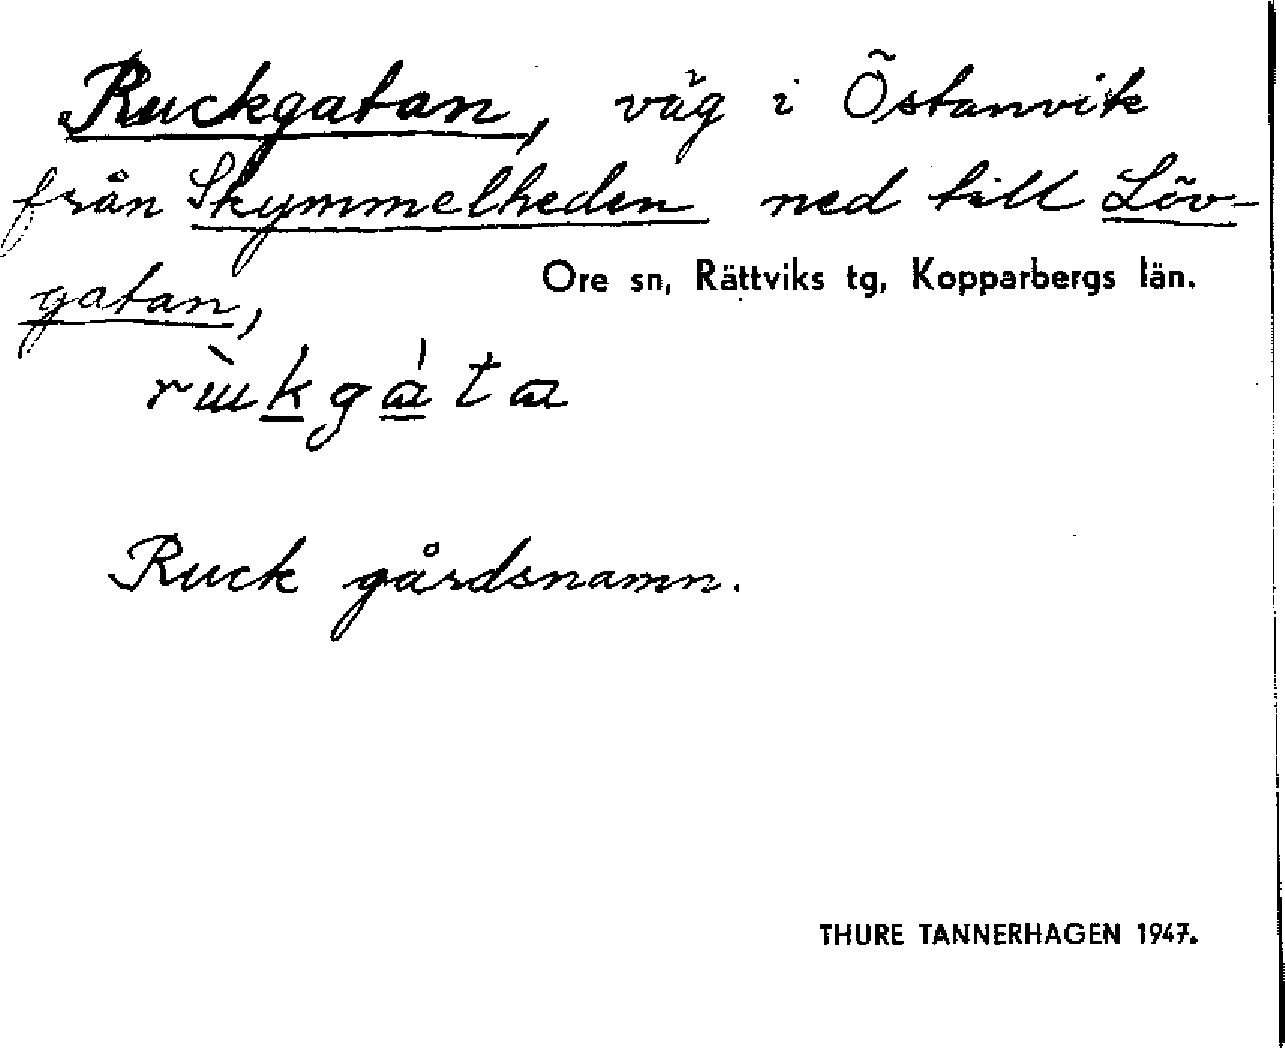 Ruckgatan, väg i Östanvik
från Skymmelheden ned till Löv-
gatan,
Ore sn, Rättviks tg, Kopparbergs län.
Ruck gårdsnamn.
THURE TANNERHAGEN 1947.